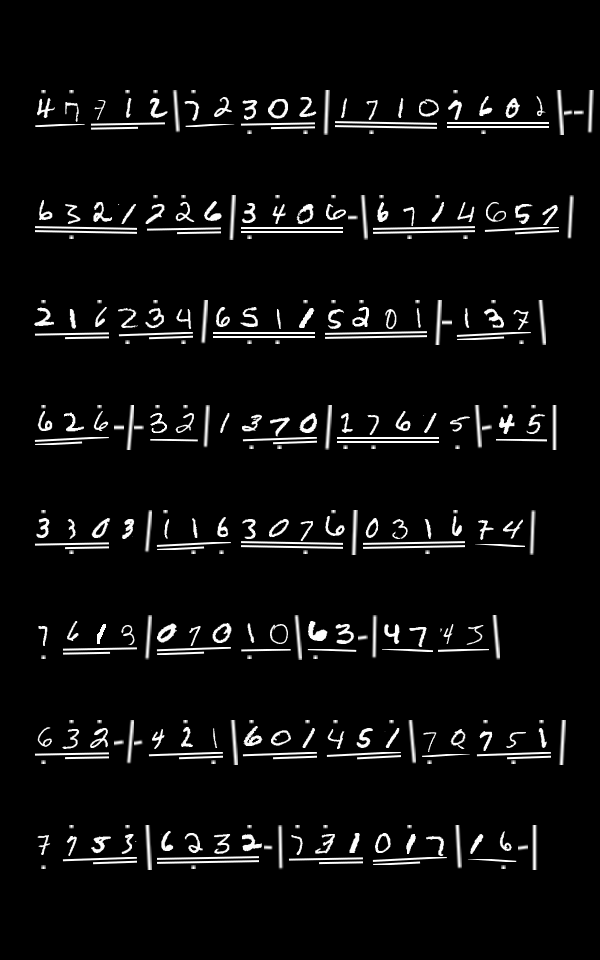 47712|72302|17107601|--|
6321226|3406-|6714657|
216234|65115201|-137|
626-|-32|1370|17615|-45|
3303|1163076|031674|
7613|07010|63-|4745|
632-|-421|601451|70751|
7753|6232-|731017|16-|